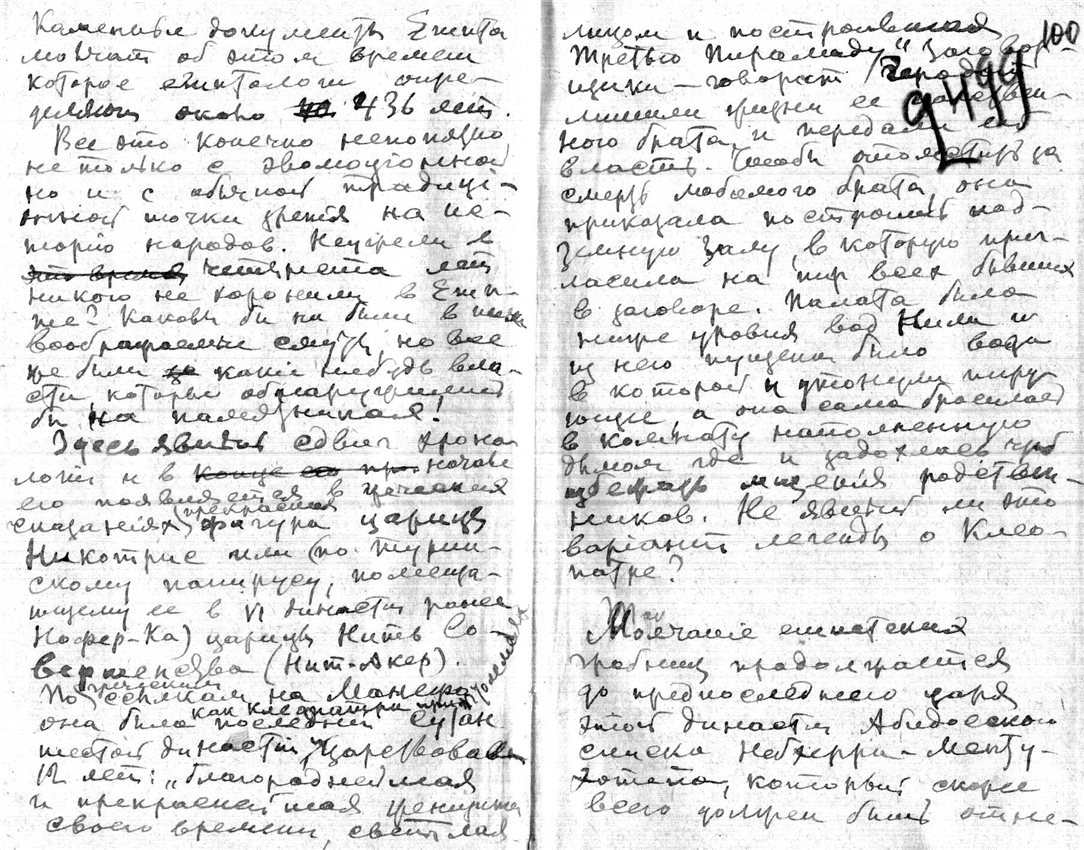 Каменные документы Египта
молчат об этом времени
которое египтологи опре-
деляют около 436 лет.
Все это конечно непонятно
не только с эволюціонной
но и с обычной традиці-
онной точки зренія на ис-
торію народов. Неужели в
это время четыреста лет
никого не хоронили в Егип-
те? Каковы би ни были в
воображаемые смуты, но все
же были какіе нибудь вла-
сти, которые обнаруживались
бы на памятниках!
Здесь явный сдвиг хроно-
логіи и в начале
его появляется в греческих
сказаніях прекрасная фигура царицы
Никотрис или (по Турин-
скому папирусу, помеща-
ющему ее в VI династіи ранее
Нофер-Ка) царицы Нить Со-
вершенства (Нит-Акер).
По греческим ссылкам на Манефона
она была как Клеопатра последней
шестой династіи, царствовавшей
12 лет: „благороднейшая
и прекраснейшая женщина
своего времени, светлая
100
лицом и построившая
третью пирамиду“ Заговор-
щики - говорит Геродот
лишили жизни ее царствен-
ного брата и передали ей
власть. Чтоби отомстить за
смерть любимого брата, она
приказала построить под-
земную залу, в которую приг-
ласила на пир всех бывших
в заговоре. Палата была
ниже уровня вод Нила и
из него пущена была вода
в которой и утонули пиру-
ющие а она сама бросилась
в комнату наполненную
дымом где и задохлась чтоб
избежать мщенія родствен-
ников. Не явный ли это
варіант легенды о Клео-
патре?
Молчаніе египетских
гробниц продолжается
до предпоследнего царя
этой династіи Абидосского
списка Небхерра-Менту-
хотепа, который скорее
всего должен быть отне-